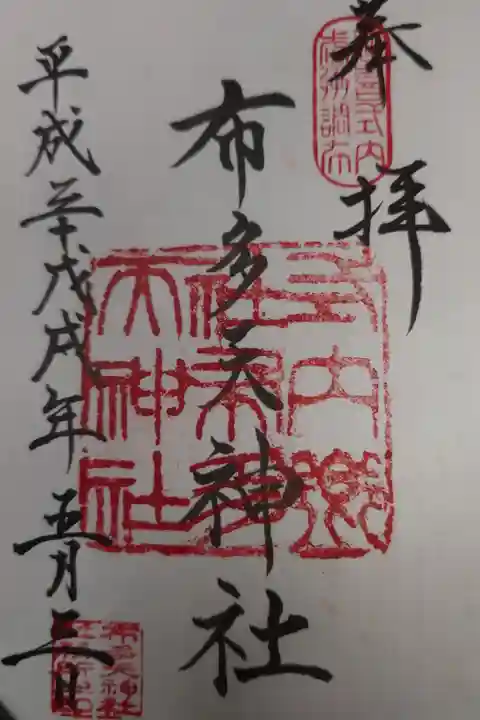 奉拝
延喜式内
武州調布
布多天神社
式内郷
社布多
天神社
平成三十戊戌年 五月三日
布多天神社